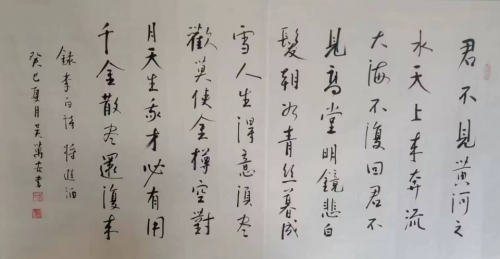 君不見黃河之
水天上来奔流
大海不復回君不
見高堂明鏡悲白
髮朝如青絲暮成
雪人生得意須尽
歡莫使金樽空對
月天生我才必有用
千金散尽還復来
錄李白詩 将進酒
癸巳夏月吴萬安書